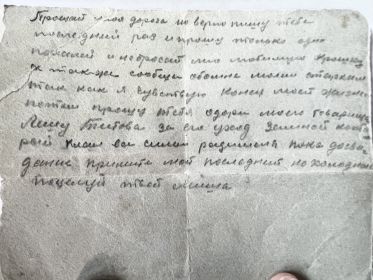 Прощай моя дорога но верно пишу тебе
последний раз и прошу только одно
пожалей и не бросай мою любимую крошку
и так же сообщи обоим моим старикам
так как я чувствую конец моей жизни
потом прошу тебя одари моего товарища
Мишу Титова за его уход за мной
всеми силами пока
последний но холодный
поцелуй твой